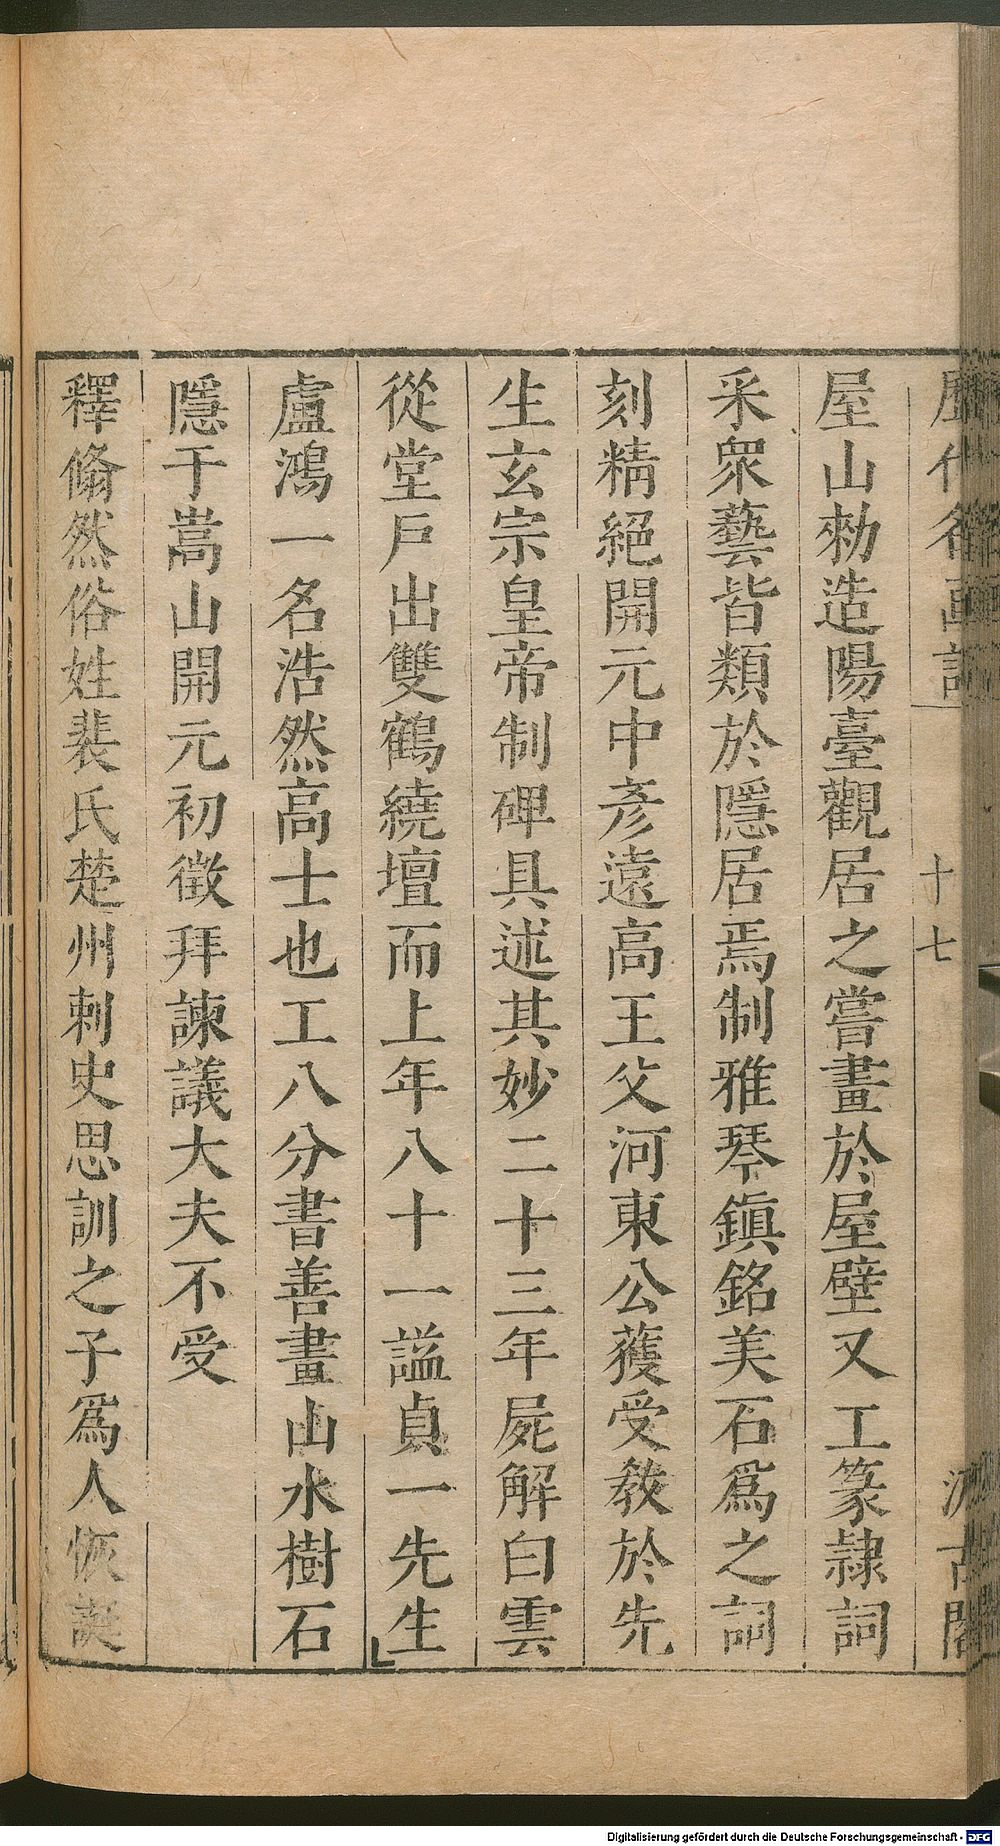 歷代名画記 十七 汲古閣
屋山勑造陽臺觀居之嘗畫於屋壁又工篆隷詞
采衆藝皆類於隱居焉制雅琴鎮銘美石爲之詞
刻精絕開元中彥遠高王父河東公蒦受教於先
生玄宗皇帝制碑具述其妙二十三年屍解白雲
從堂戶出雙鶴繞壇而上年八十一謚貞一先生
盧鴻一名浩然高士也工八分書善畫山水樹石
隱于嵩山開元初徵拜諫議大夫不受
釋翛然俗姓裴氏楚州刺史思訓之子爲人恢誕
Digitalisierung gefördert durch die Deutsche Forschungsgemeinschaft - DFG